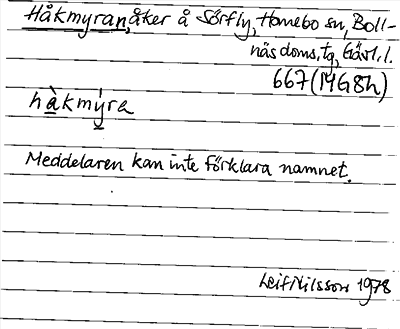 Håkmyran, åker å Sörfly, Hanebo sn, Boll-
näs doms.tg, Gävl.l.
667 (14G8h)
hàkmýra
Meddelaren kan inte förklara namnet.
Leif Nilsson 1978